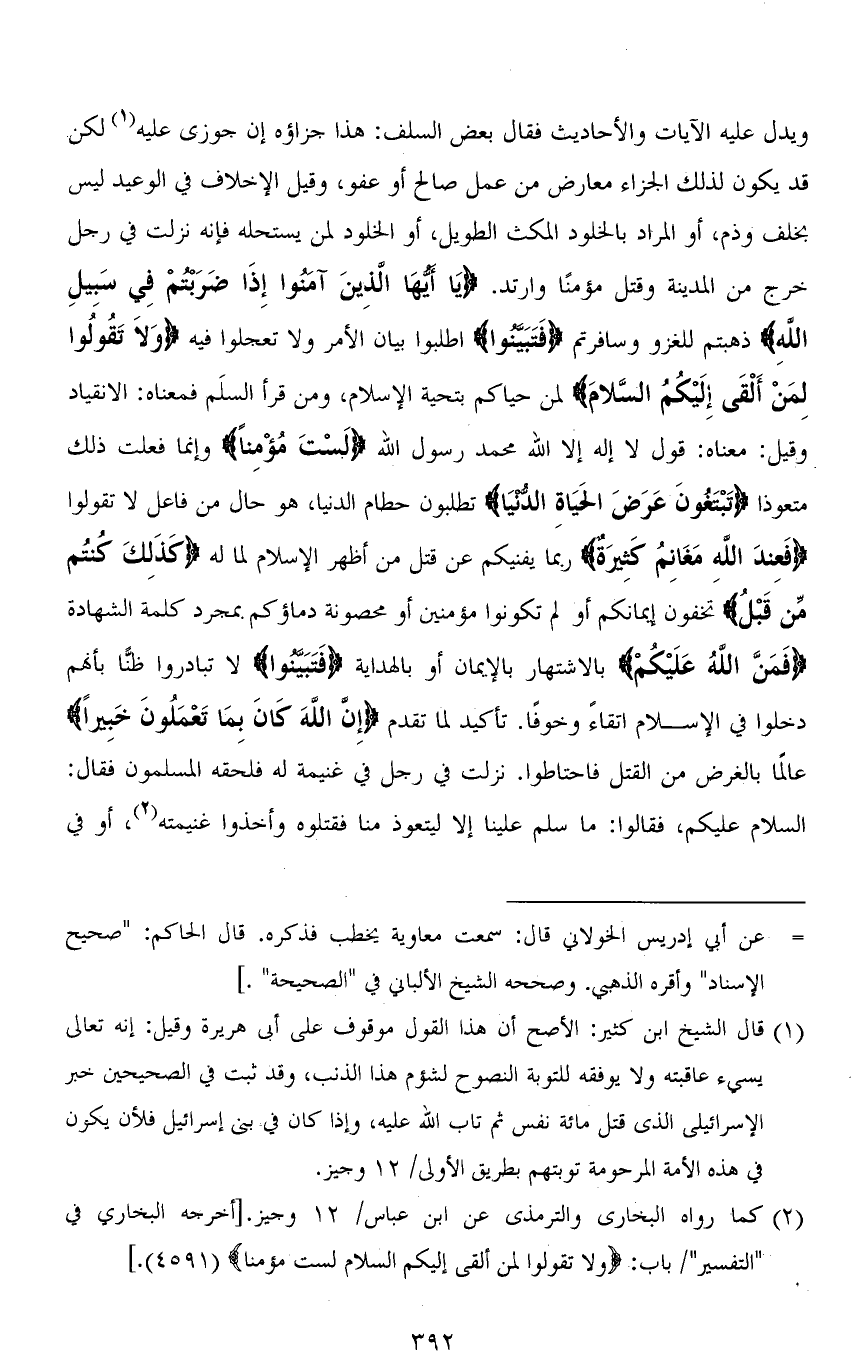 ويدل عليه الآيات والأحاديث فقال بعض السلف: هذا جزاؤه إن جوزى عليه(١) لكن
قد يكون لذلك الجزاء معارض من عمل صالح أو عفو، وقيل الإخلاف في الوعيد ليس
بخلف وذم، أو المراد بالخلود المكث الطويل، أو الخلود لمن يستحله فإنه نزلت في رجل
خرج من المدينة وقتل مؤمنًا وارتد. ﴿يَا أَيُّهَا الَّذِينَ آمَنُوا إِذَا ضَرَبْتُمْ فِي سَبِيلِ
اللَّهِ﴾ ذهبتم للغزو وسافرتم ﴿فَتَبَيَّنُوا﴾ اطلبوا بيان الأمر ولا تعجلوا فيه ﴿وَلاَ تَقُولُوا
لِمَنْ أَلْقَى إِلَيْكُمُ السَّلامَ﴾ لمن حياكم بتحية الإسلام، ومن قرأ السلَم فمعناه: الانقياد
وقيل: معناه: قول لا إله إلا الله محمد رسول الله ﴿لَسْتَ مُؤْمِناً﴾ وإنما فعلت ذلك
متعوذا ﴿تَبْتَغُونَ عَرَضَ الحَيَاةِ الدُّنْيَا﴾ تطلبون حطام الدنيا، هو حال من فاعل لا تقولوا
﴿فَعِندَ اللَّهِ مَغَانِمُ كَثِيرَةٌ﴾ ربما يفنيكم عن قتل من أظهر الإسلام لما له ﴿كَذَلِكَ كُنتُم
مِّن قَبْلُ﴾ تخفون إيمانكم أو لم تكونوا مؤمنين أو محصونة دماؤكم بمجرد كلمة الشهادة
﴿فَمَنَّ اللَّهُ عَلَيْكُمْ﴾ بالاشتهار بالإيمان أو بالهداية ﴿فَتَبَيَّنُوا﴾ لا تبادروا ظنًّا بأنهم
دخلوا في الإســـلام اتقاءً وخوفًا. تأكيد لما تقدم ﴿إِنَّ اللَّهَ كَانَ بِمَا تَعْمَلُونَ خَبِيراً﴾
عالمًا بالغرض من القتل فاحتاطوا. نزلت في رجل في غنيمة له فلحقه المسلمون فقال:
السلام عليكم، فقالوا: ما سلم علينا إلا ليتعوذ منا فقتلوه وأخذوا غنيمته(٢)، أو في
= عن أبي إدريس الخولاني قال: سمعت معاوية يخطب فذكره. قال الحاكم: "صحيح
الإسناد" وأقره الذهبي. وصححه الشيخ الألباني في "الصحيحة" .]
(١) قال الشيخ ابن كثير: الأصح أن هذا القول موقوف على أبى هريرة وقيل: إنه تعالى
يسيء عاقبته ولا يوفقه للتوبة النصوح لشؤم هذا الذنب، وقد ثبت في الصحيحين خبر
الإسرائيلى الذى قتل مائة نفس ثم تاب الله عليه، وإذا كان في بنى إسرائيل فلأن يكون
في هذه الأمة المرحومة توبتهم بطريق الأولى/ ١٢ وجيز.
(٢) كما رواه البخارى والترمذى عن ابن عباس/ ١٢ وجيز.[أخرجه البخاري في
"التفسير"/ باب: ﴿ولا تقولوا لمن ألقى إليكم السلام لست مؤمنا﴾ (٤٥٩١).]
٣٩٢